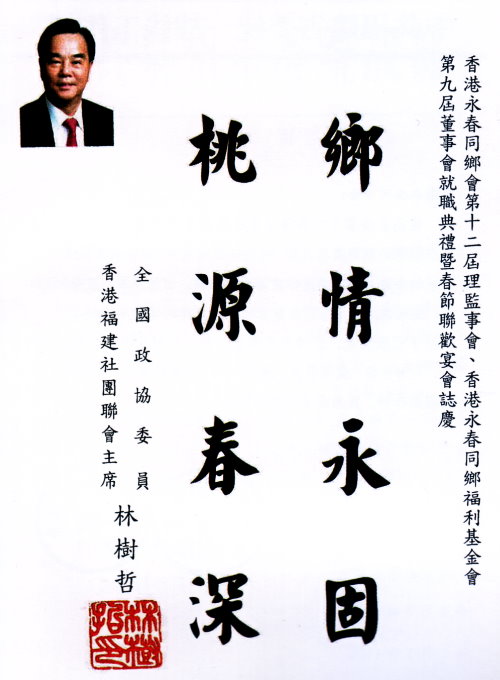 香港永春同鄉會第十二屆理監事會、香港永春同鄉福利基金會
第九屆董事會就職典禮暨春節聯歡宴會誌慶
鄉情永固
桃源春深
全國政協委員
香港福建社團聯會主席
林樹哲
林樹哲印